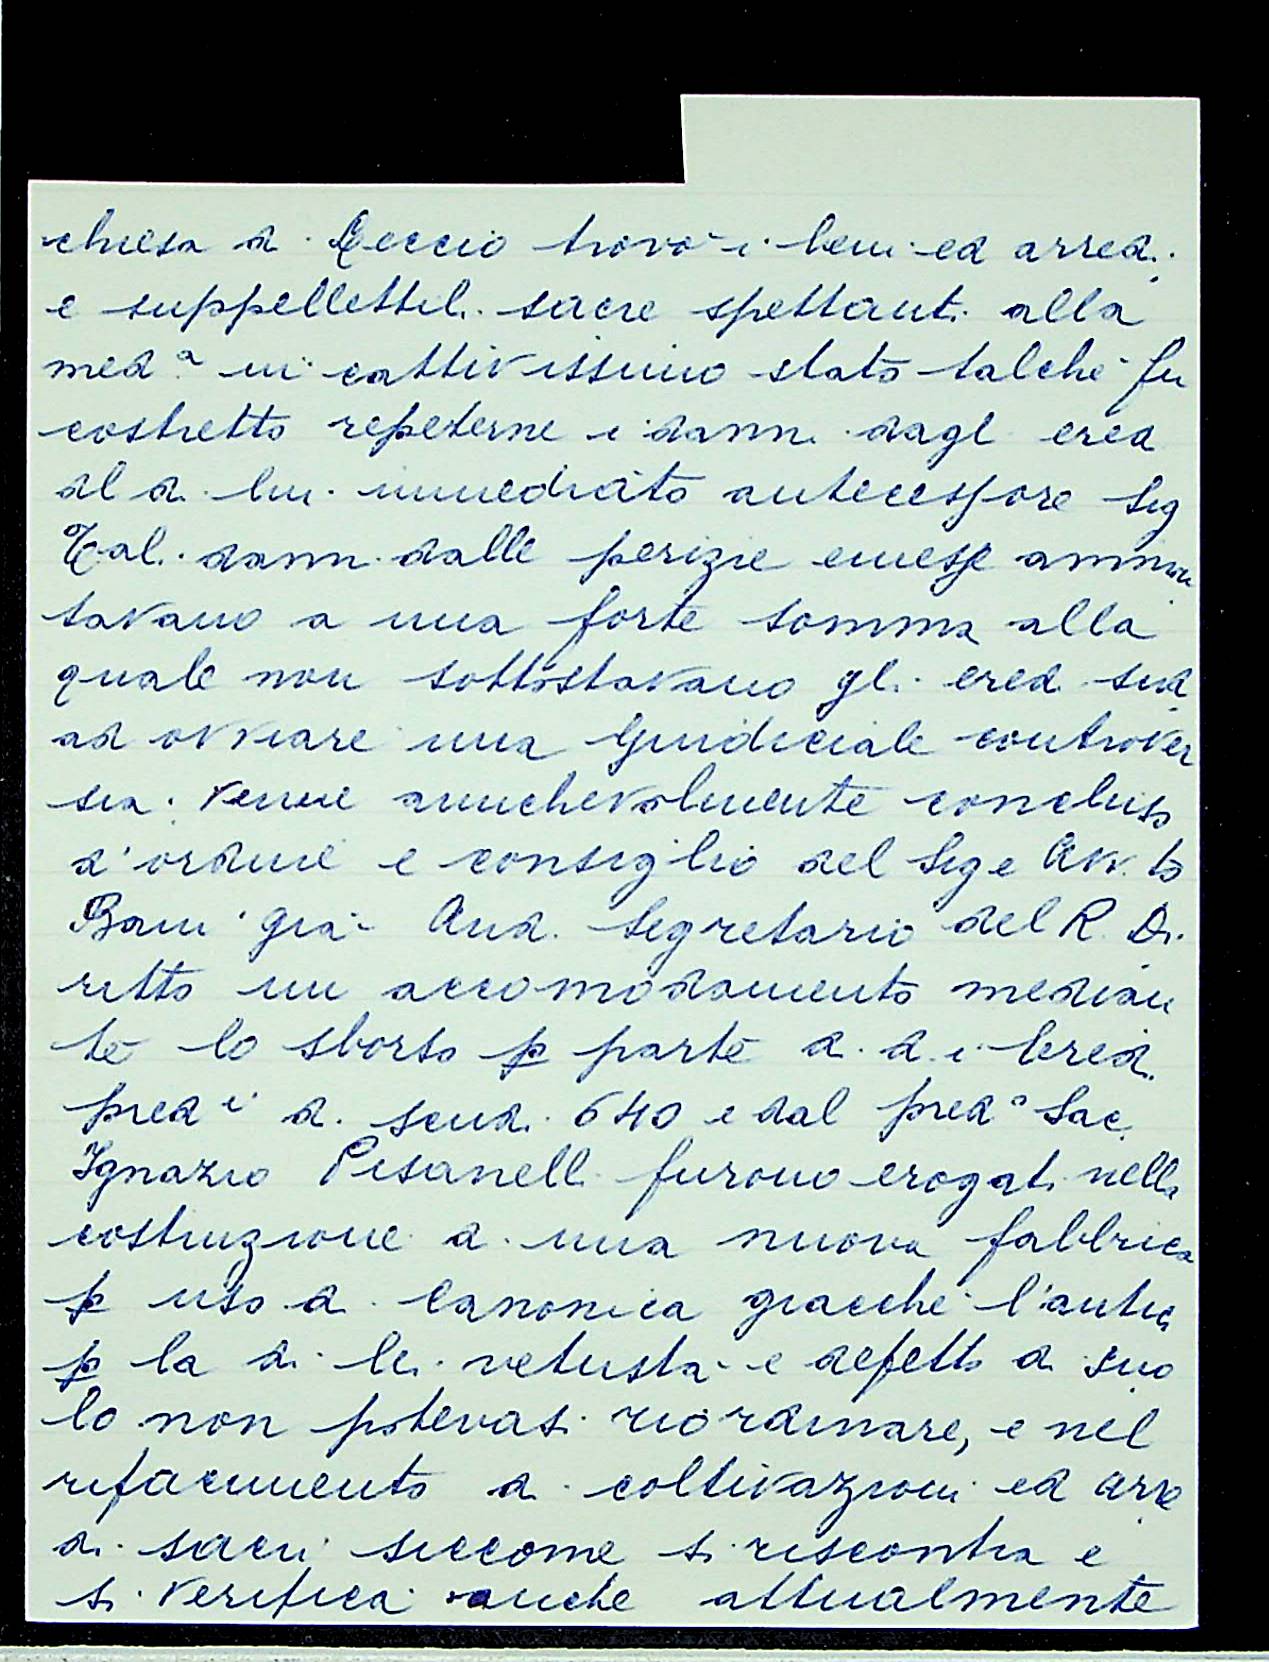 chiesa di Ceccio trovò i beni ed arredi
e suppellettili sacre spettanti alla
med.a in cattivissimo stato talchè fu
costretto repeterne i danni dagli eredi
al di lui immediato antecessore Sig
Tali danni dalle perizie emesse ammon
tavano a una forte somma alla
quale non sottostavano gli eredi sud
ad ovviare una Giudiciale controver
sia. Venne amichevolmente concluso
d'ordine e consiglio del Sig.e Avv.to
già Aud. Segretario del R. Di
ritto un accomodamento median
te lo sborso p parte di d.i Eredi
pred.i di scudi 640 e dal pred.o Sac.
Ignazio Pisanelli furono erogati nella
costruzione di una nuova fabbrica
p uso di Canonica giacchè l'antica
p la di lei vetustà e difetto di suo
lo non potevasi riordinare, e nel
rifacimento di coltivazioni ed arre
di sacri siccome si riscontra e
si verifica anche attualmente